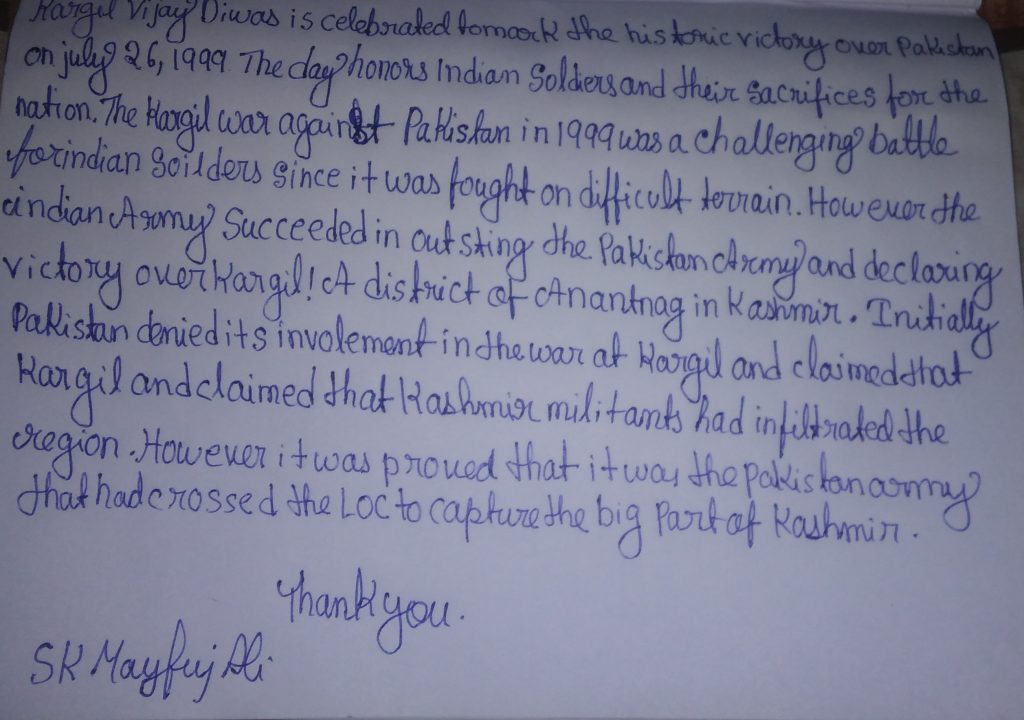 Kargil Vijay Diwas is celebrated tomark the historic victory over Pakistan
on july 26, 1999. The day honors Indian Soldiers and their Sacrifices for the
nation. The Kargil war against Pakistan in 1999 was a challenging battle
for indian Soilders Since it was fought on difficult terrain. However the
indian Army Succeeded in outsting the Pakistan Army and declaring
victory over Kargil! A district of Anantnag in Kashmir. Initially
Pakistan denied its involement in the war at Kargil and claimed that
Kargil and claimed that Kashmir militants had infiltrated the
region. However it was proved that it was the pakistan army
that had crossed the LOC to capture the big Part of Kashmir.
Thank you.
SK Mayfuj Ali